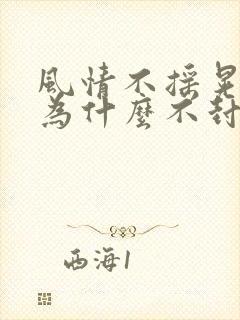 風情不摇晃
為什麼不封
西海1